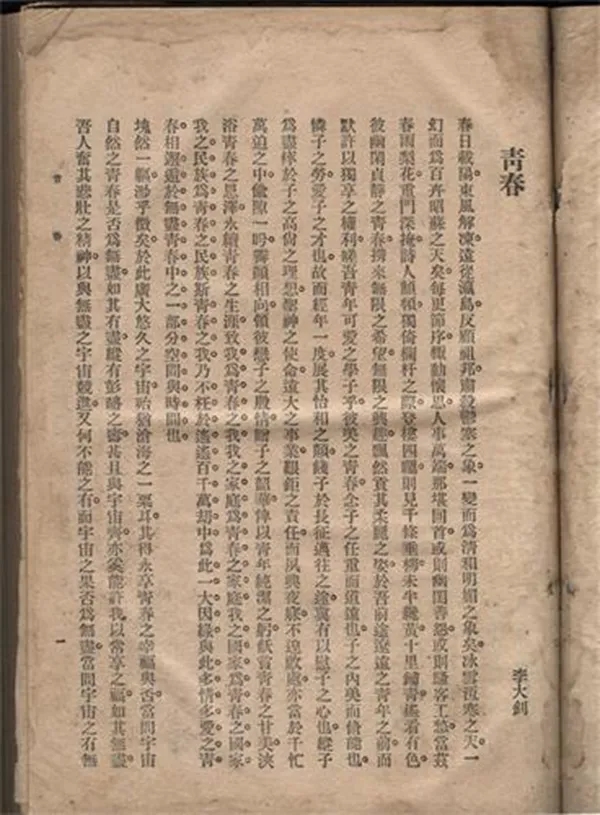 青春
李大釗
春日載陽東風解凍遠從瀛島反顧祖邦肅殺鬱塞之象一變而爲清和明媚之象矣冰雪沍寒之天一
幻而爲百卉昭蘇之天矣每更節序輒動懷思人事萬端那堪回首或則幽閨善怨或則騷客工愁當茲
春雨梨花重門深掩詩人顦顇獨倚欄杆之際登樓四矚則見千條垂柳未半纔黃十里鋪青遙看有色
彼幽閑貞靜之青春攜來無限之希望無限之興趣飄然貢其柔麗之姿於吾前途遼遠之青年之前而
默許以獨享之權利嗟吾青年可愛之學子乎彼美之青春念子之任重而道遠也子之內美而修能也
憐子之勞愛子之才也故而經年一度展其怡和之顏餞子於長征邁往之途冀有以慰子之心也縱子
爲盡瘁於子之高尚之理想聖神之使命遠大之事業艱鉅之責任而夙興夜寐不遑啟處亦當於千忙
萬迫之中偷隙一盼霽顏相向領彼戀子之殷情贈子之韶華俾以青年純潔之躬飫嘗青春之甘美浹
浴青春之恩澤永續青春之生涯致我爲青春之我我之家庭爲青春之家庭我之國家爲青春之國家
我之民族爲青春之民族斯青春之我乃不枉於遙遙百千萬劫中爲此一大因緣與此多情多愛之青
春相邂逅於無盡青春中之一部分空間與時間也
塊然一軀渺乎微矣於此廣大悠久之宇宙殆猶滄海之一粟耳其得永享青春之幸福與否當問宇宙
自然之青春是否爲無盡如其有盡縱有彭聃之壽甚且與宇宙齊亦奚能許我以常享之福如其無盡
吾人奮其悲壯之精神以與無盡之宇宙競進又何不能之有而宇宙之果否爲無盡當問宇宙之有無
青 春
一